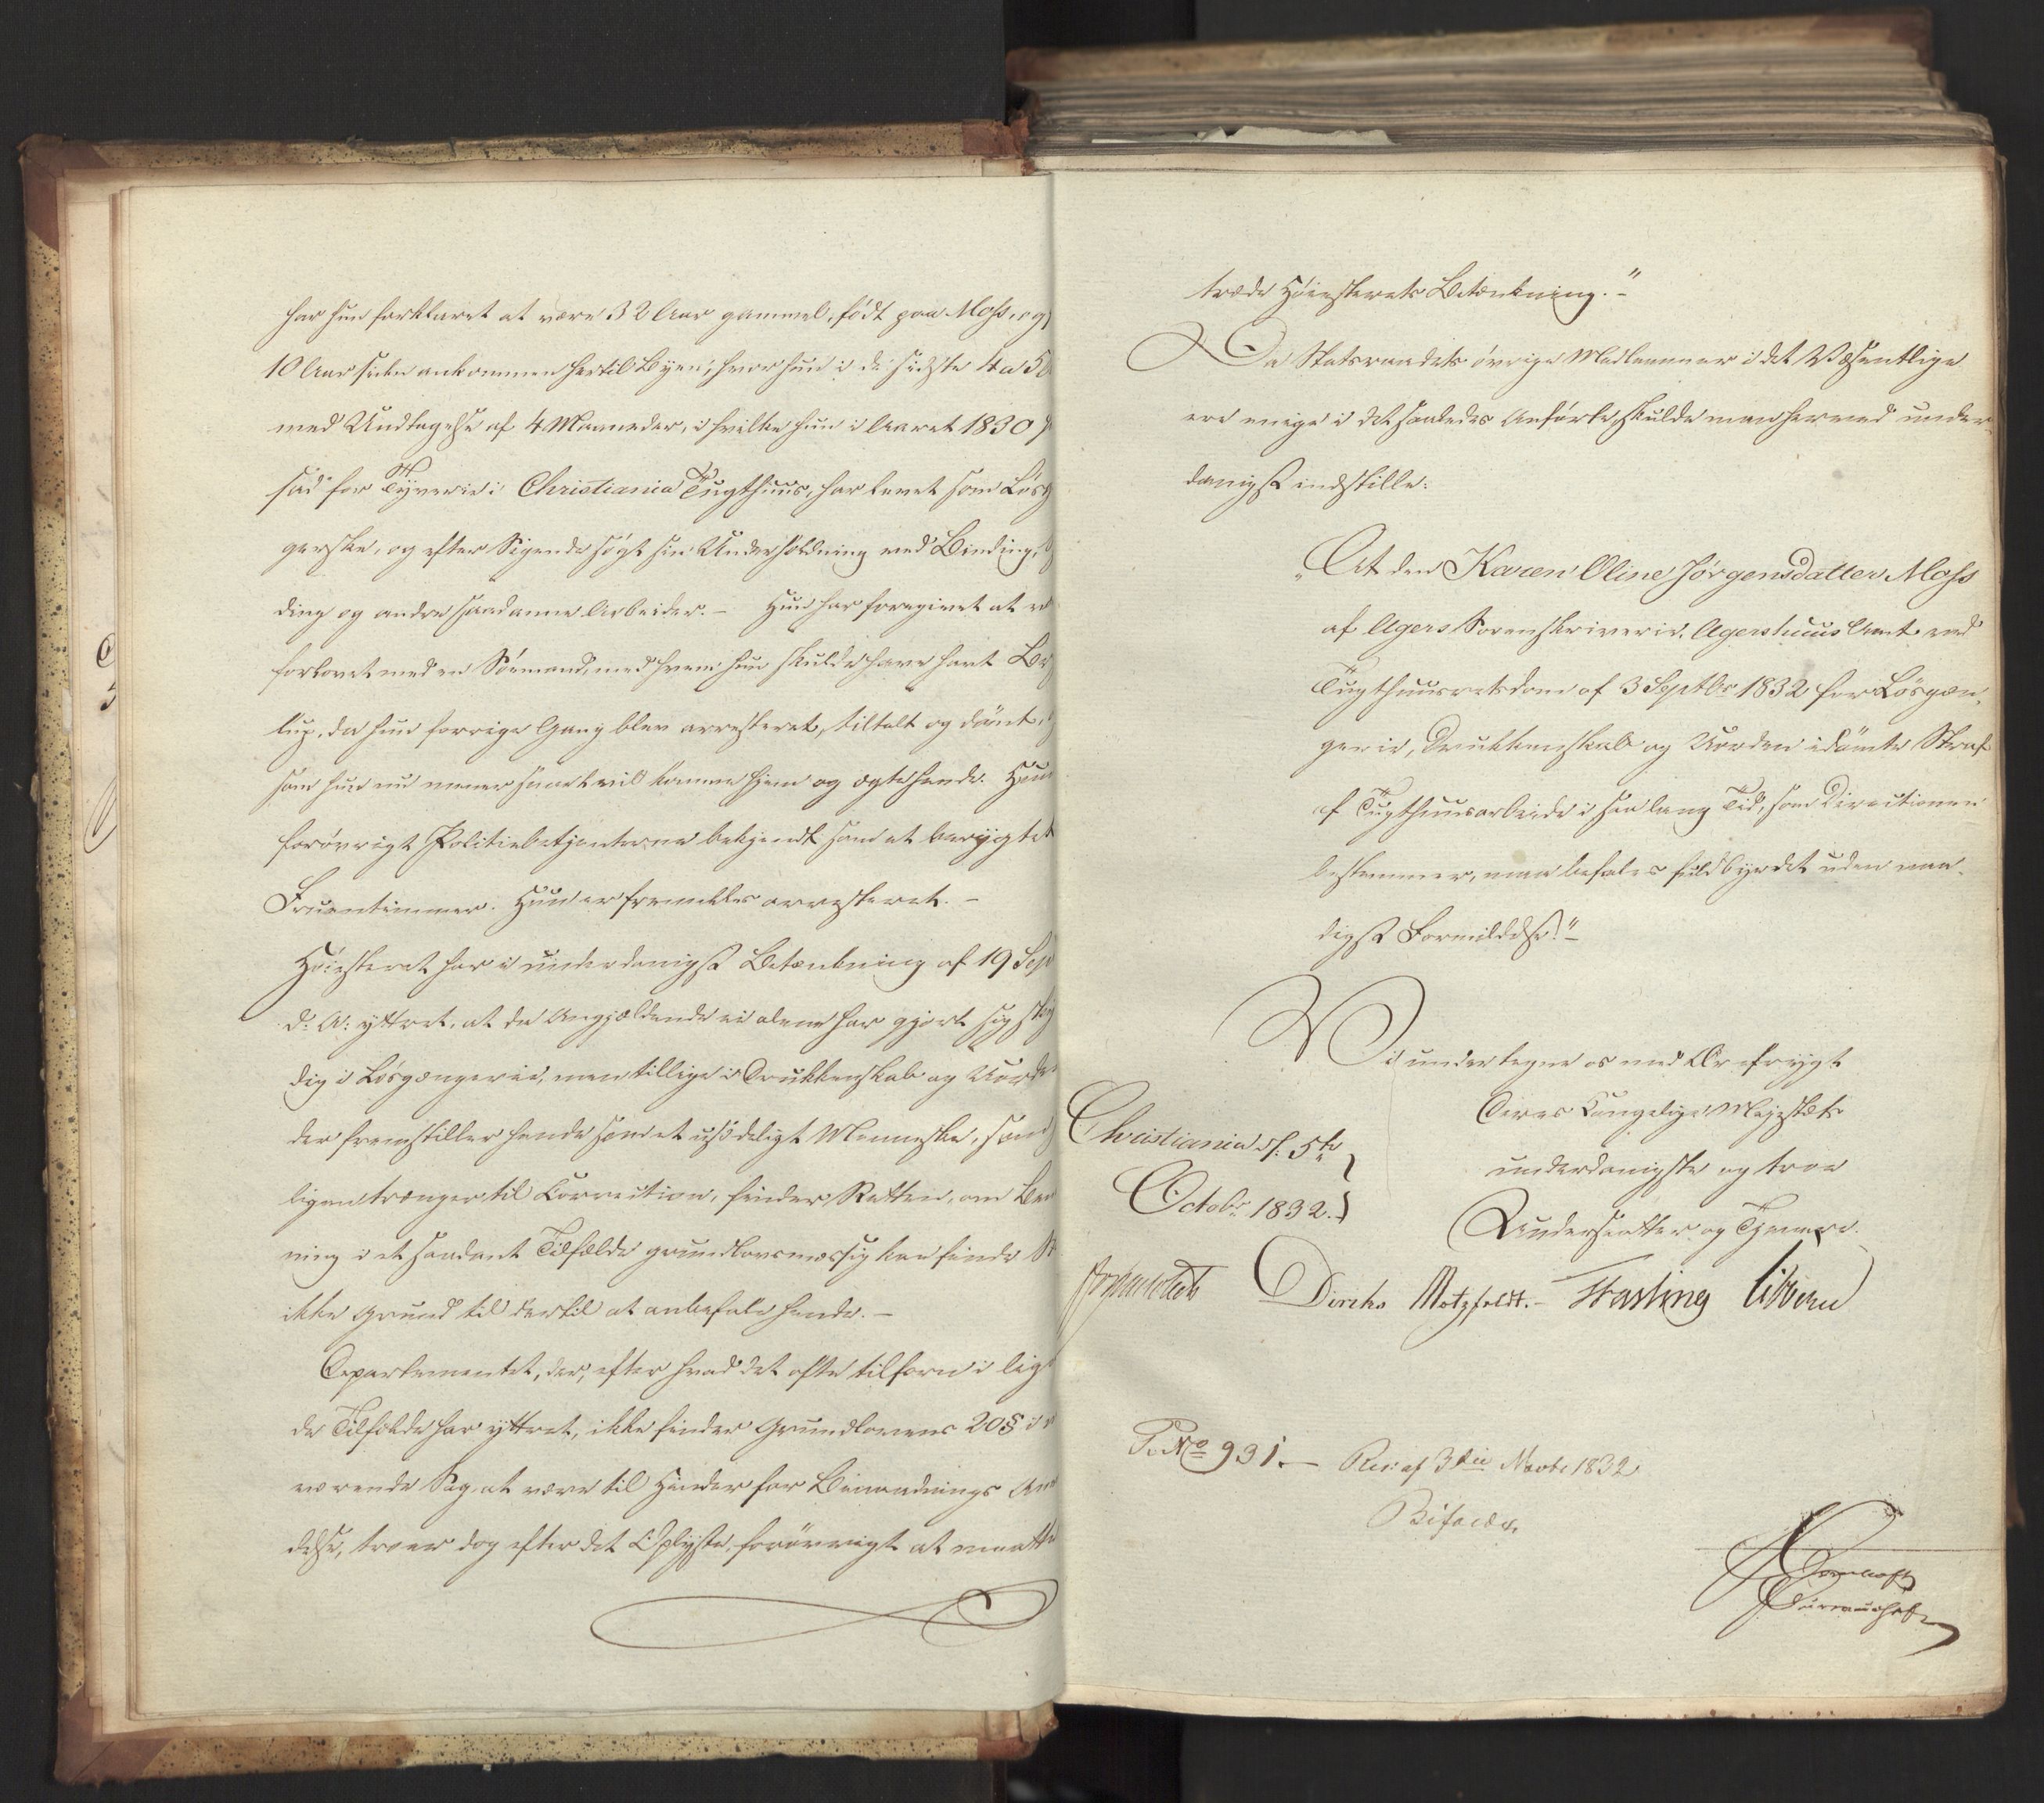 har hun forklaret at være 32 Aar gammel, født paa Moss, og
10 Aar siden ankommen hertil Byen, hvor hun i de sidste 4 a 5
med Undtagelse af 4 Maaneder, i hvilke hun i Aaret 1830
sad for Tyverie i Christiania Tugthuus, har levet som Løsgjæn
gerske, og efter Sigende søgt sin Underholdning ved Binding,
ding og andre saadanne Arbeider. – Hun har foregivet at være
forlovet med en Sømand, med hvem hun skulde have havt
lup, da hun forrige Gang blev arresteret, tiltalt og dømt,
som hun nu mener snart vil komme hjem og ægte hende. Hun
forøvrigt Politiebetjenterne bekjendt som et berygtet
Fruentimmer. Hun er fremdeles arresteret. –
Høiesteret har i underdanigst Betænkning af 19 Sept
d: A: yttret, at da Angjældende ei alene har gjort sig skyl
dig i Løsgængerie, men tillige i Drukkenskab og Uorden
der fremstiller hende som et usædeligt Menneske, som
ligen trænger til Correction, finder Retten, om Benaad
ning i et saadant Tilfælde grundlovsmæssig kan finde
ikke Grund til dertil at anbefale hende. –
Departementet, der, efter hvad det ofte tilforn i lig
de Tilfælde har yttret, ikke finder Grundlovens 20 § i
værende Sag at være til Hinder for Benaadnings
delse, troer dog efter det Oplyste, forøvrigt at maatte
træde Høiesterets Betænkning." –
Da Statsraadets øvrige Medlemmer i det Væsentlige
ere enige i det saaledes Anførte, skulde man herved under-
danigst indstille:
"At den Karen Oline Jørgensdatter Moss
af Agers Sorenskriverie, Agershuus Amt ved
Tugthuusretsdom af 3 Septbr 1832 for Løsgæn-
gerie, Drukkenskab og Uorden idømte Straf
af Tugthuusarbeide i saa lang Tid, som Directionen
bestemmer, maa befales fuldbyrdet uden naa-
digst Formildelse." –
Vi undertegne os med Ærefrygt
Deres Kongelige Majestæts
underdanigste og troe
Undersaatter og Tjenere.
Christiania d. 5te
Octobr 1832.
Diriks Motzfeldt. – Fasting Sibbern
P. No 931. – Res: af 3die Novbr 1832
Bifaldes.